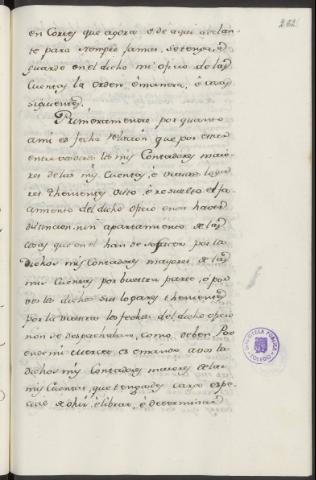 282
en Cortes que agora e de aqui adelan-
te para siempre jamas, se tenga, e
guarde en el dicho mi oficio de las
Cuentas la orden, e manera, e cosas
siguientes.
Primeramente por quanto
a mi es fecha relacion que por estar
entre vosotros los mis Contadores maio-
res de las mis Cuentas, e vuestros logares
thenientes visto, e resuelto el
del dicho oficio en no hacer
distincion, nin apartamento de las
cosas que en el han de por los
dichos mis Contadores mayores de las
mis Cuentas por vuestra parte, e por
los dichos sus logares thenientes
por la vuestra los fechos del dicho oficio
non se despachaban, como deben. Por
ende mi merced es e mando a vos los
dichos mis Contadores maiores de las
mis Cuentas, que tengades cargo espe-
cial de ohir, e librar, e determinar
BIBLIOTECA PUBLICA
TOLEDO